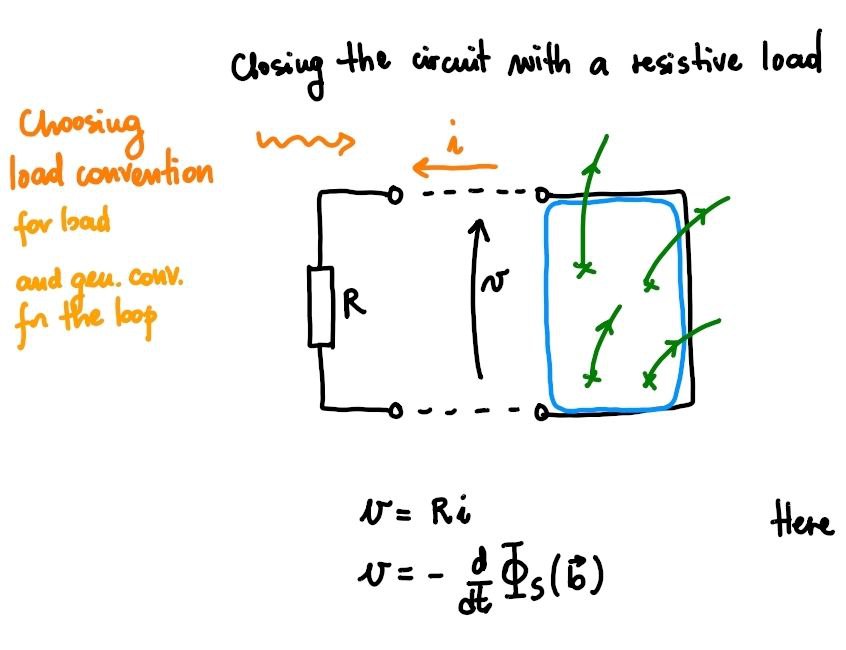 Closing the circuit with a resistive load
Choosing
load convention
for load
and gen. conv.
for the loop
i
R
v
v = Ri
v = - d/dt Φs(b⃗)
Here